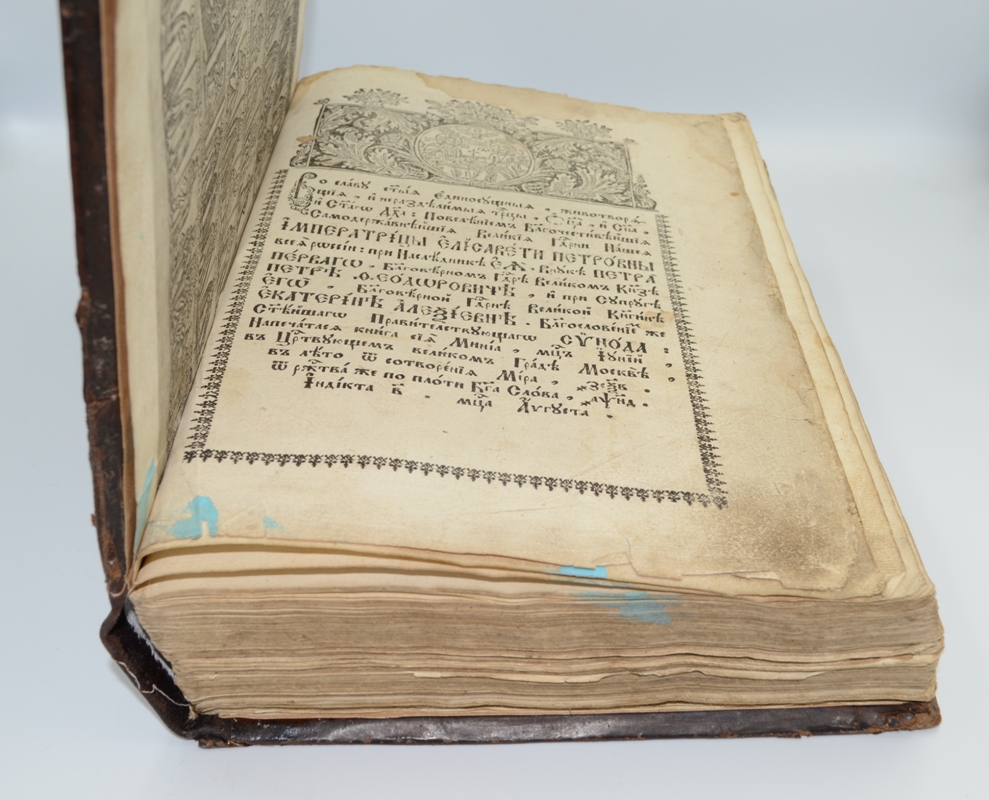 Во славу ст҃ыѧ Единосꙋщныѧ , животворѧ-
щіѧ , и нераздѣлимыѧ трⷪ҇цы , Ѻц҃а , и Сн҃а ,
и Ст҃агѡ Дх҃а : Повелѣніемъ Бл҃гочестивѣйшіѧ
Самодержавнѣйшіѧ Великіѧ Гдⷭ҇рни Нашеѧ
ІМПЕРАТРІЦЫ ЕЛІСАВЕТИ ПЕТРОВНЫ
всеѧ рѡссіи : при Наслѣдникѣ Еѧ̀ . Внꙋкѣ ПЕТРА
ПЕРВАГѠ , Бл҃говѣрномъ Гдⷭ҇рѣ Великомъ Кнⷵ҇зѣ
ПЕТРѢ ѲЕОДѠРОВИЧѢ , и при Сꙋпрꙋгѣ
ЕГѠ , Бл҃говѣрной Гдⷭ҇рнѣ Великой Кнⷵ҇гинѣ
ЕКАТЕРІНѢ АЛЕѮІЕВНѢ . Бл҃гословеніемъ же
Ст҃ѣйшагѡ Правителствꙋющагѡ СѴНОДА :
Напечатасѧ книга сіѧ Минїа , мцⷭ҇ъ Іꙋній ,
въ Црⷭ҇твꙋющемъ великомъ Градѣ Москвѣ ,
въ лѣто ѿ сотворенїѧ Міра , ҂зс҃ѯв .
ѿ ржⷭ҇тва же по плоти Бг҃а Слова , ҂аѱн҃д .
Індікта в҃ . мцⷭ҇а Аѵгꙋста .